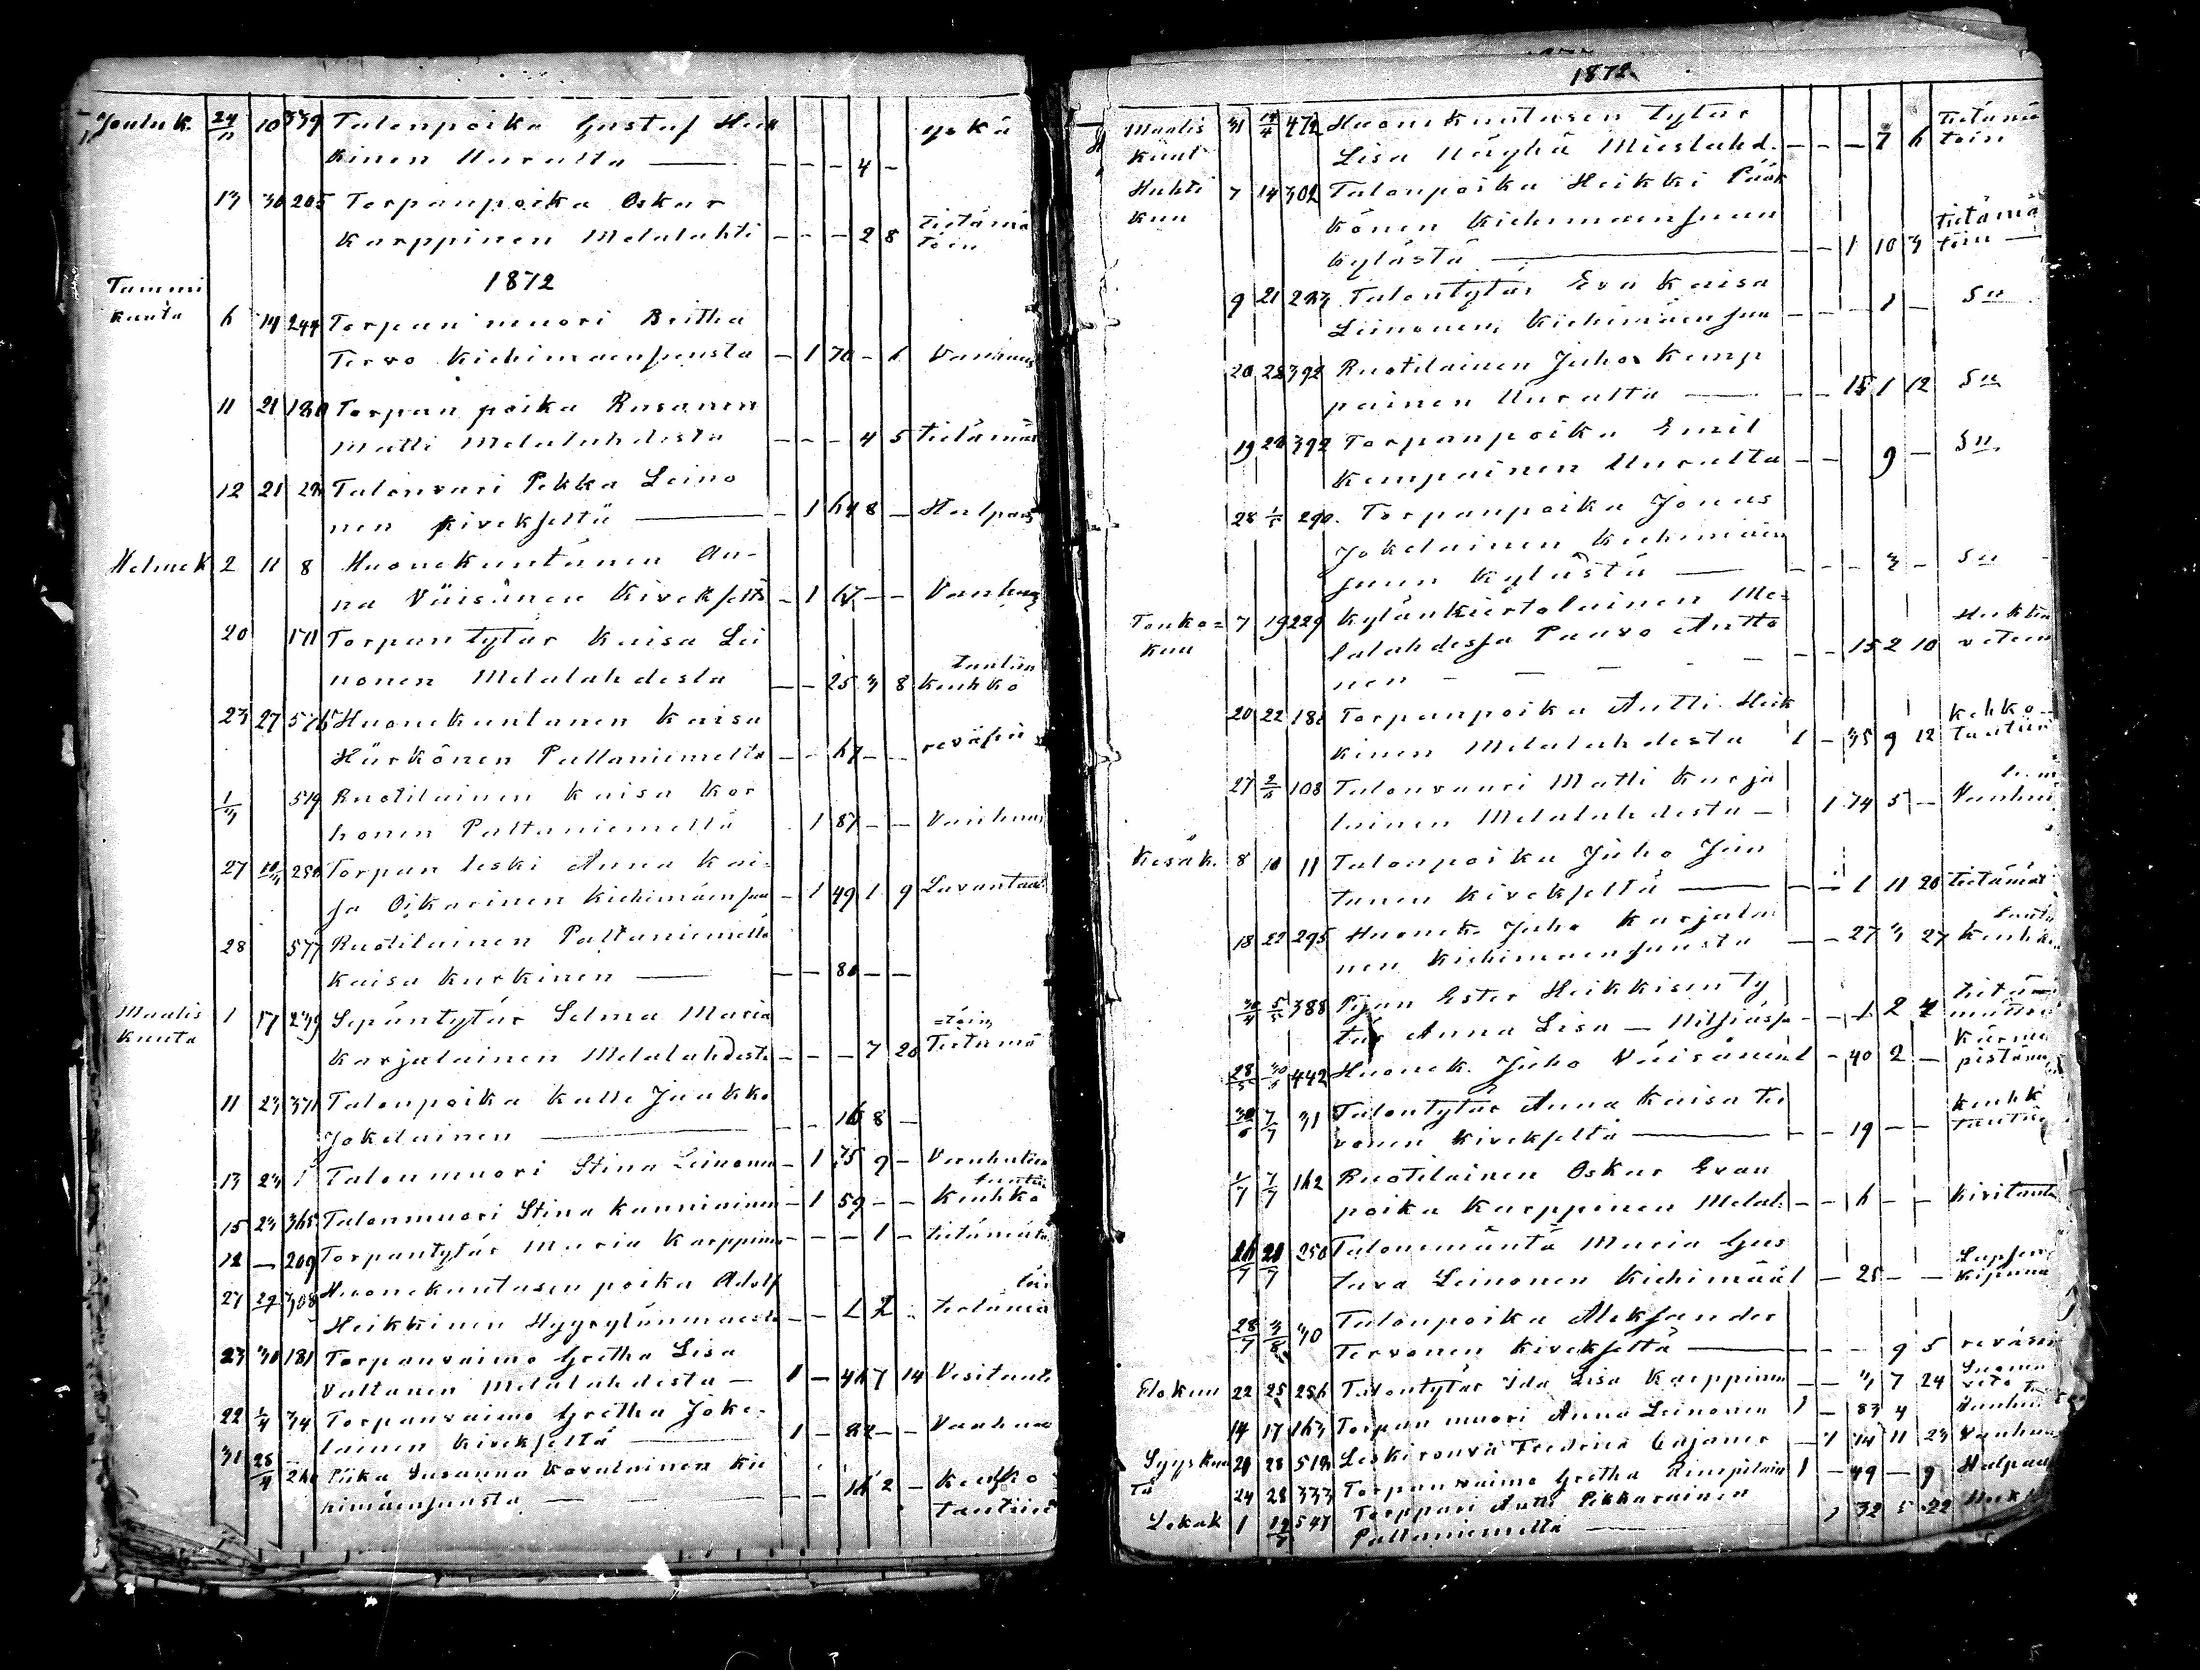 Jouluk. 24/11 10 339 Talonpoika Gustaf Heik
kinen Uuralta — — — — 4 — yskä
13 30 205 Torpanpoika Oskar
Karppinen Melalahti — — — 2 8 tietämä
töin
1872
Tammi
kuuta 6 14 244 Torpan muori Britha
Tervo Kiehimaensuusta — 1 70 — 6 Vanhuus
11 21 180 Torpan poika Rusanen
Matti Melalahdesta — — — 4 5 tietämät
12 21 Talonvari Pekka Leino
nen Kivekseltä — — 1 64 8 — Halpaus
Helmek 2 11 8 Huonekuntanen An-
na Väisänen Kivekseltä — 1 67 — — Vanhuus
20 171 Torpantytär Kaisa Lei
nonen Melalahdesta — — 25 3 8 keuhko
tautiin
23 27 576 Huonekuntanen Kaisa
Härkönen Paltaniemeltä — — 67 — —
1/3 519 Ruotilainen Kaisa Kor
honen Paltaniemeltä 1 87 — — Vanhuus
27 10/3 250 Torpan leski Anna Kai-
sa Oikarinen Kiehimäensuu — 1 49 1 9 Lavantau
28 577 Ruotilainen Paltaniemeltä
Kaisa Kurkinen — — — 80 — —
Maalis
kuuta 1 17 239 Sepäntytär Selma Maria
Karjalainen Melalahdesta — — — 7 20 Tietämä
=töin
11 23 371 Talonpoika Kalle Jaakko
Jokelainen — — — 16 8 —
13 23 1 Talonmuori Stina Leinonen — 1 75 9 — Vanhuteen
15 23 365 Talonmuori Stina Kanniainen — 1 59 — — Keuhko
tautiin
12 — 209 Torpantytär Maria Karppinen — — — 1 — tietämätö
27 29/ 308 Huonekuntasen poika Adolf
Heikkinen Hyyrylänmaesta — — 2 tietämä
23 30 181 Torpanvaimo Gretha Lisa
Valtanen Melalahdesta — 1 — 46 7 14 Vesitauti
22 1/4 34 Torpanvaimo Gretha Joke-
lainen Kivekseltä — 1 — 82 — — Vanhuus
31 28/4 Piika Susanna Kovalainen Kie
himäensuusta — — — 16 2 — Keuhko
tautiin
1872.
Maalis
kuut 31 14/4 472 Huonekuntasen tytär
Lisa Näyhä Mieslahd. — — — 7 6 Tietämä
töin
Huhti
kuu 7 14 302 Talonpoika Heikki Pääk
könen Kiehimaensuun
kylästä — — — 1 10 3 tietämä
töin —
9 21 Talontytär Eva Kaisa
Leinonen, Kiehimäensuu — — — 1 — Su
20 28 392 Ruotilainen Juho Kemp
painen Uuralta — — — 15 1 12 Su
19 28 392 Torpanpoika Emil
Kempainen Uuralta — — 9 — Su
28 1/5 290. Torpanpoika Jonas
Jokelainen Kiehimäen
suun kylästä — — — — 3 — Su
Touko=
kuu 7 19 229 Kylänkiertolainen Me=
lalahdessa Paavo Antto
nen — — — 15 2 10 Hukku
veteen
20 22 Torpanpoika Antti Heik
kinen Melalahdesta 1 — 35 9 12 kehko
tautiin
27 2/6 108 Talonvaari Matti Karja
lainen Melalahdesta — 1 74 5 — Vanhuu
Kesäk. 8 10 11 Talonpoika Juho Jun
tunen Kivekseltä — — — 1 11 20 tietämät
18 22 295 Huonek. Juho Karjalai
nen Kiehimaensuusta — — 27 3 27 keuhko
30/4 5/5 388 Pijan Ester Heikkisen ty
tär Anna Lisa — — — 1 2 4 tietä
mättö
28/5 30/6 442 Huonek. Juho Väisänen 1 — 40 2 —
30/6 7/7 31 Talontytär Anna Kaisa Ter
vonen Kivekseltä — — — 19 — — keuhk
tautiin
1/7 7/7 162 Ruotilainen Oskar Evan
poika Karppinen Melal. — — 6 — —
26/7 28/7 250 Talonemäntä Maria Gus
tava Leinonen Kiehimää 1 — 25 — — Lapsen
kipuna
28/7 3/8 30 Talonpoika Aleksander
Tervonen Kivekseltä — — — — 9 5
Elokuu 22 25 256 Talontytär Ida Lisa Karppinen — — 3 7 24
14 17 163 Torpan muori Anna Leinonen 1 — 83 4 Vanhuu
Syyskuu
ta 20 28 512 Leskirouva Fredrica Cajaner — 1 74 11 23 Vanhuus
24 28 333 Torpanvaimo Gretha 1 — 49 — 9 Halpaus
Lokak 1 547 Torppari Antti Pikkarainen
Paltaniemeltä — 1 32 5 22